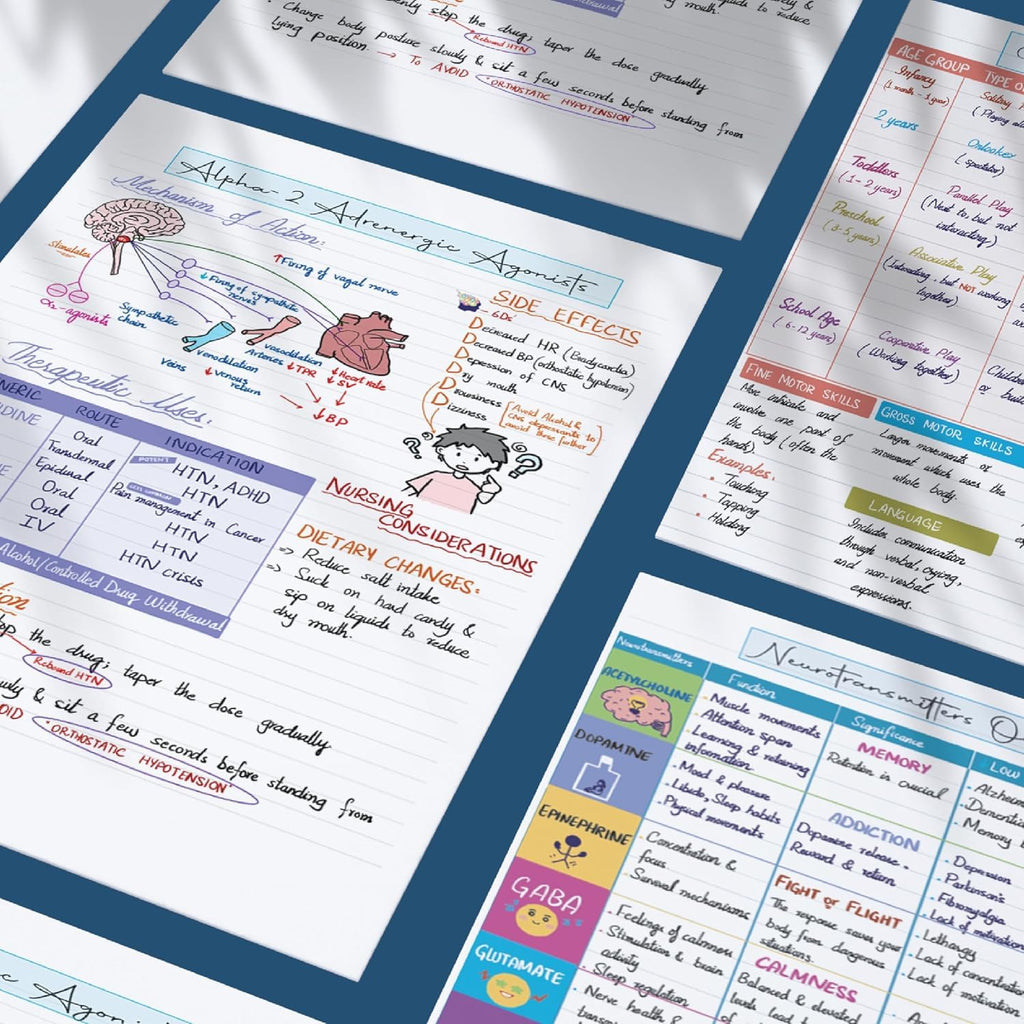 Withdrawal
mouth.
liquids to reduce
stop the drug; taper the dose gradually
Rebound HTN
• Change body posture slowly & sit a few seconds before standing from
lying position. → To AVOID "ORTHOSTATIC HYPOTENSION"
Alpha-2 Adrenergic Agonists
Mechanism of Action:
stimulates
α₂-agonists
↑Firing of vagal nerve
↓Firing of sympathetic
nerves
Sympathetic
chain
Veins
venodilation
↓venous
return
Arteries
vasodilation
↓TPR
↓Heart rate
↓SV
↓BP
SIDE EFFECTS
6Ds
Decreased HR (Bradycardia)
Decreased BP (orthostatic hypotension)
Depression of CNS
Dry mouth
Drowsiness
Dizziness
Avoid Alcohol &
CNS depressants to
avoid these further
Therapeutic Uses:
ROUTE
INDICATION
Oral
Transdermal
Epidural
Oral
Oral
IV
POTENT
HTN, ADHD
HTN
Pain management in Cancer
HTN
HTN
HTN crisis
Alcohol/Controlled Drug Withdrawal
NURSING
CONSIDERATIONS
DIETARY CHANGES:
⇒ Reduce salt intake
⇒ Suck on hard candy &
sip on liquids to reduce
dry mouth.
the drug; taper the dose gradually
Rebound HTN
& sit a few seconds before standing from
"ORTHOSTATIC HYPOTENSION"
AGE GROUP
TYPE
Infancy
(1 month - 1 year)
Solitary
(Playing
2 years
Onlooker
(spectator)
Toddlers
(1-2 years)
Parallel Play
(Next to but not
interacting)
Preschool
(3-5 years)
Associative Play
(Interacting, but NOT working
together)
School Age
(6-12 years)
Cooperative Play
(Working together)
FINE MOTOR SKILLS
More intricate and
involve one part of
the body (often the
hand).
Examples:
• Touching
• Tapping
• Holding
GROSS MOTOR SKILLS
Larger movements or
movement which uses the
whole body.
LANGUAGE
Includes communication
through verbal, crying,
and non-verbal
expressions.
Neurotransmitters
Neurotransmitters
Function
Significance
Low
ACETYLCHOLINE
- Muscle movements
- Attention span
- Learning & retaining
information
MEMORY
Retention is crucial
- Dementia
- Memory
DOPAMINE
- Mood & pleasure
- Libido, Sleep habits
- Physical movements
ADDICTION
Dopamine release -
Reward & return
- Depression
- Parkinson's
- Fibromyalgia
- Lack of motivation
EPINEPHRINE
- Concentration &
focus
- Survival mechanisms
FIGHT or FLIGHT
The response saves your
body from dangerous
situations.
- Lethargy
- Lack of concentration
- Lack of motivation
GABA
- Feelings of calmness
- Stimulation & brain
activity
- Sleep regulation
CALMNESS
Balanced & elevated
levels lead to
GLUTAMATE
- Nerve health &